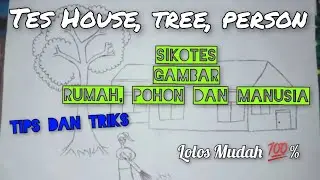 Tes House, tree, person
SIKOTES
GAMBAR
RUMAH, POHON DAN MANUSIA
TIPS DAN TRIKS
Lolos Mudah 💯%